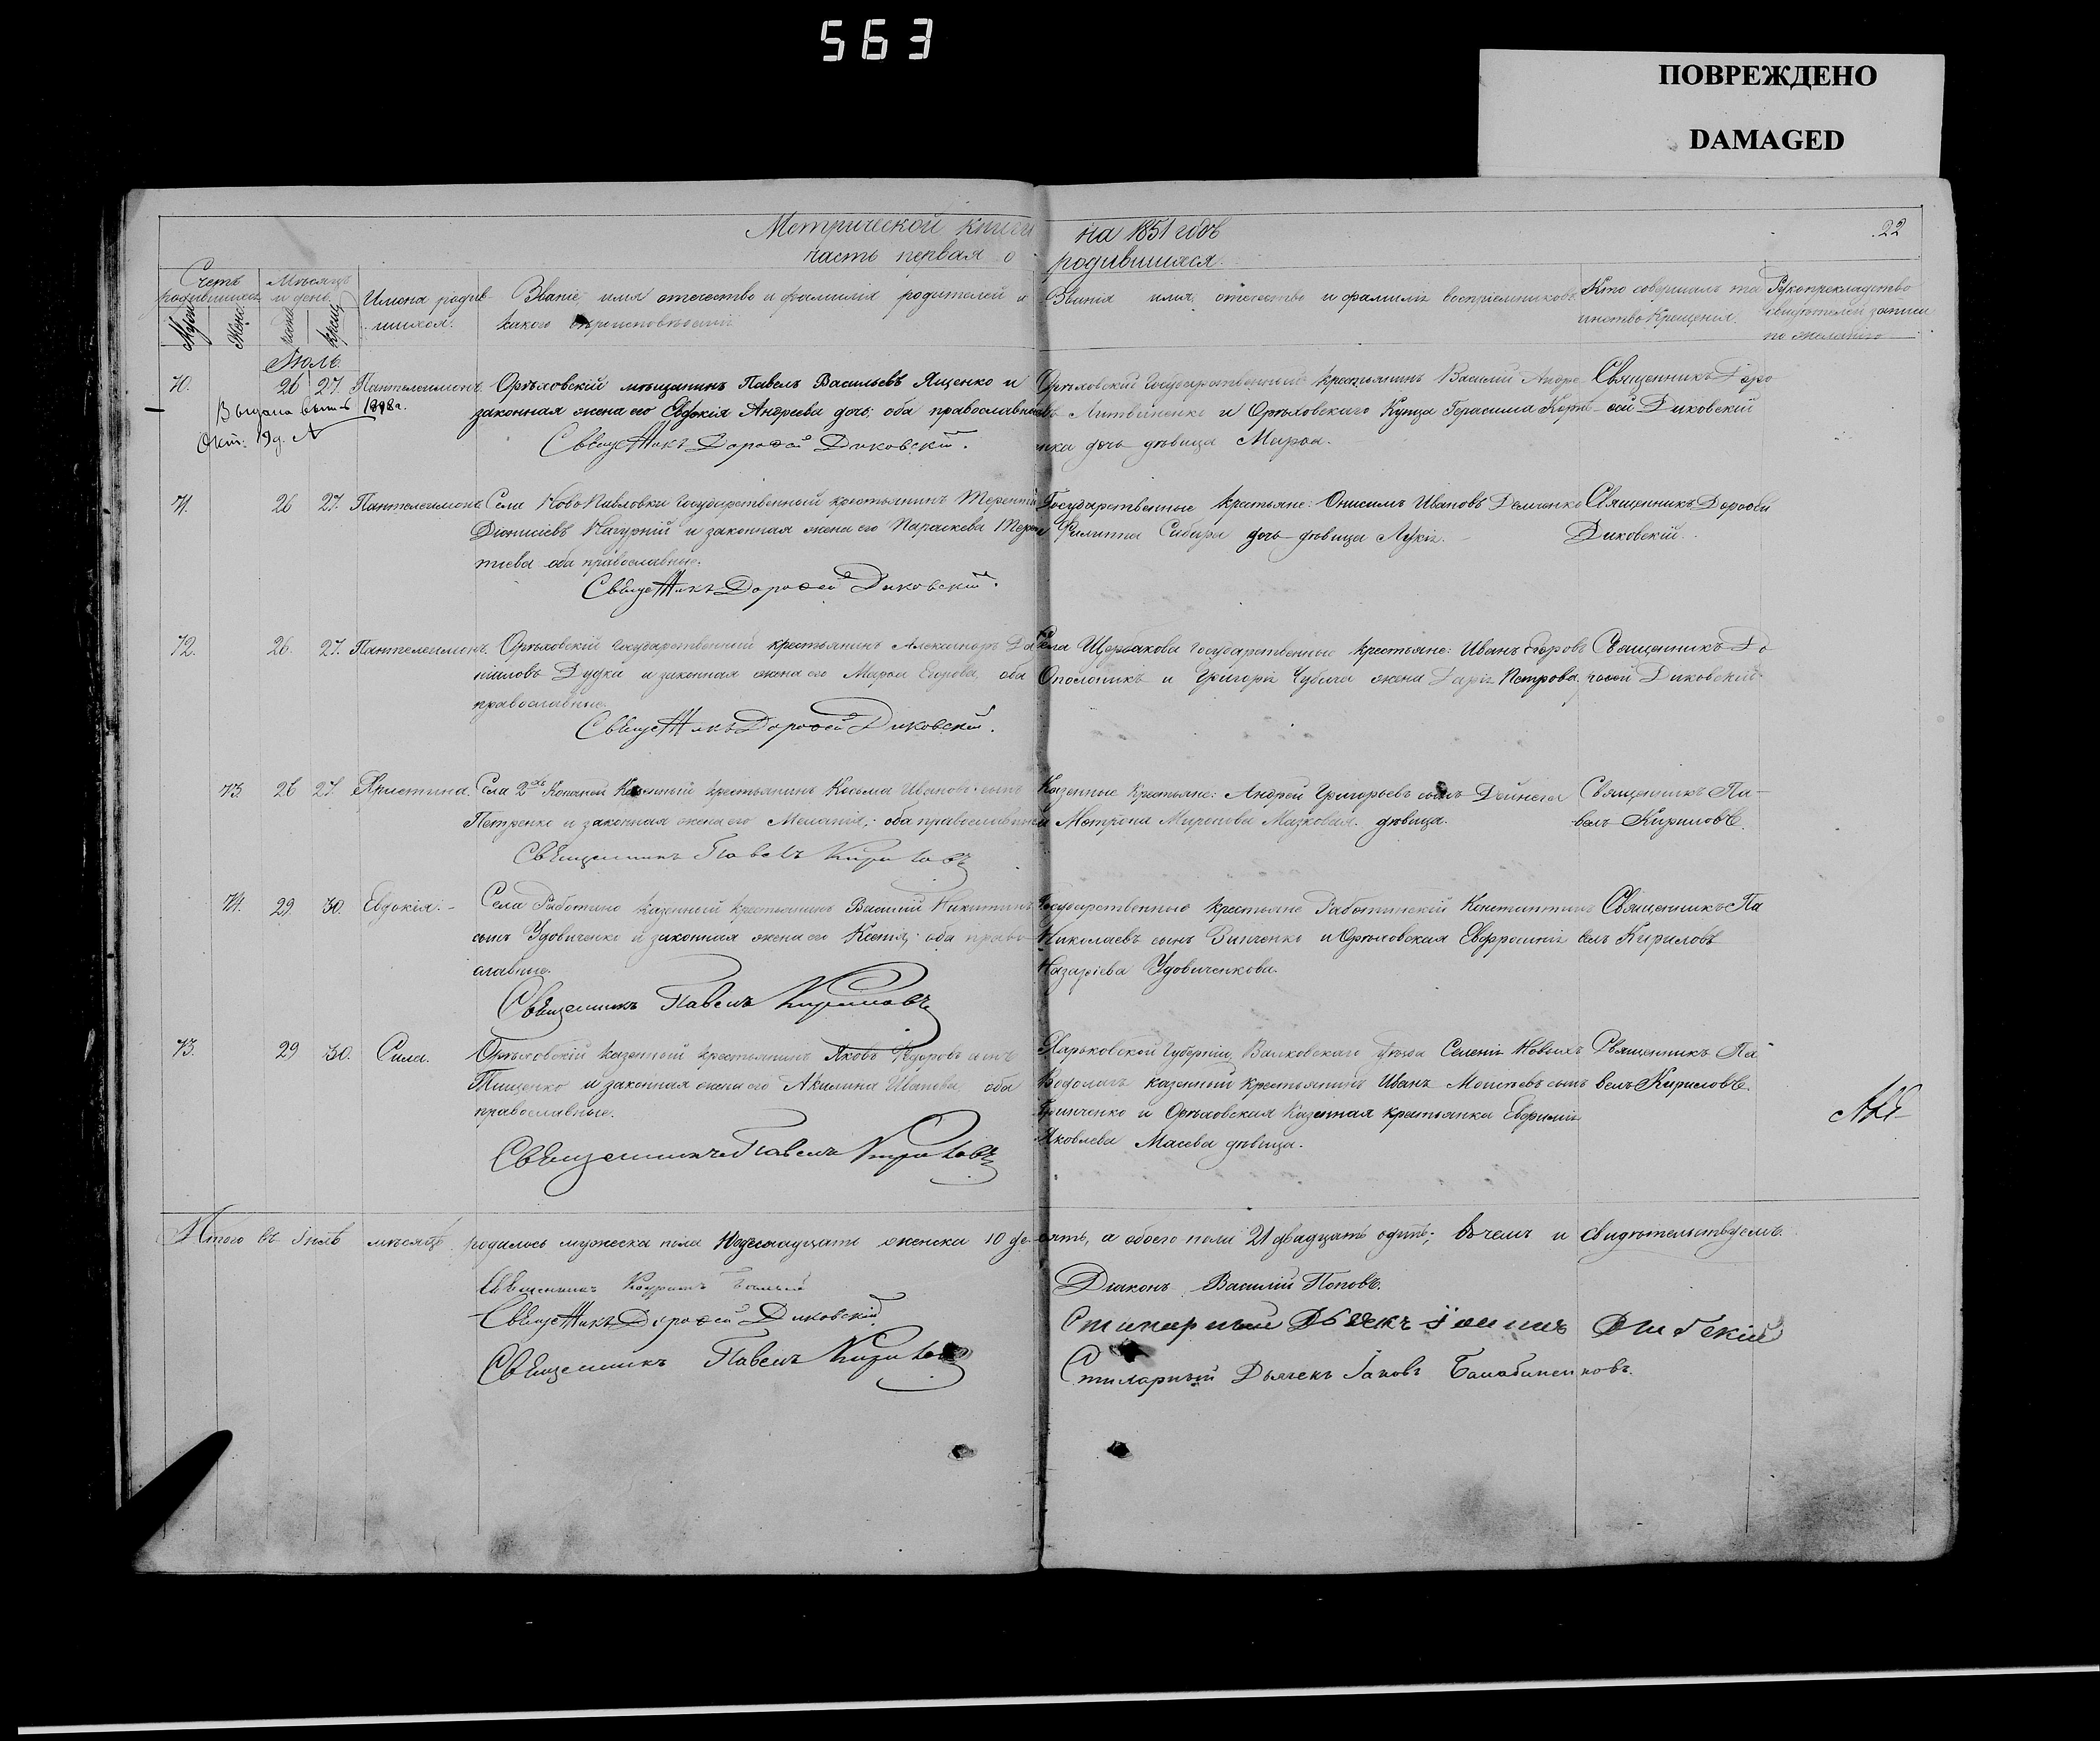 563
ПОВРЕЖДЕНО
DAMAGED
Метрической книги на 1851 годъ
22
часть первая о родившихся.
Счетъ родившихся
Мѣсяцъ и день.
Имена родившихся.
Званіе, имя отечество и фамилія родителей и какого вѣроисповѣданія
Званія имя, отечество и фамилія воспріемниковъ.
Кто совершалъ таинство Крещенія.
Рукоприкладство свидѣтелей записи по желанію
Муж. Жен. рожд. крещ.
Іюль.
70. 26 27. Пантелеимонъ. Орѣховскій мѣщанинъ Павелъ Васильевъ Ященко и
законная жена его Евдокія Андреева дочь; оба православные
Священникъ Дорофей Диковскій.
Выдана 1898 г.
Окт. 19 д. №
Орѣховскій Государственный крестьянинъ Василій Андре
евъ Литвиненко и Орѣховскаго Купца Герасима
дочь дѣвица Марфа.
Священникъ Доро
фей Диковскій
71. 26 27. Пантелеимонъ Села Ново Павловки Государственный крестьянинъ Терентій
Діонисіевъ Нагурній и законная жена его Параскева Терен
тіева оба православные.
Священникъ Дорофей Диковскій.
Государственные крестьяне: Онисимъ Ивановъ Демченко
и Филиппа Сибира дочь дѣвица Лукія.
Священникъ Дорофей
Диковскій.
72. 26. 27. Пантелеимонъ. Орѣховскій Государственный крестьянинъ Александръ Да
ниловъ Дудка и законная жена его Марфа Егорова, оба
православные.
Священникъ Дорофей Диковскій.
Села Щербакова Государственные крестьяне: Иванъ Егоровъ
Ополоникъ и Григорія Чубича жена Дарія Петрова
Священникъ До
рофей Диковскій
73 26 27. Христина. Села 2й Копаней Казенный крестьянинъ Козьма Ивановъ сынъ
Петренко и законная жена его Меланія, оба православные
Священникъ Павелъ Кириловъ
Казенные крестьяне: Андрей Григорьевъ сынъ Дейнега
и Матрона Миронова Мазковая дѣвица.
Священникъ Па-
велъ Кириловъ.
74. 29. 30. Евдокія. Села Работино казенный крестьянинъ Василій Никитинъ
сынъ Удовиченко и законная жена его Ксенія, оба право
славные.
Священникъ Павелъ Кириловъ
Государственные крестьяне Работинскій Константинъ
Николаевъ сынъ Зинченко и Орѣховская Евфросинія
Назаріева Удовиченкова.
Священникъ Па
велъ Кириловъ
73. 29 30. Сила. Орѣховскій казенный крестьянинъ Яковъ Федоровъ сынъ
Тищенко и законная жена его Акилина Иванова, оба
православные.
Священникъ Павелъ Кириловъ
Харьковской Губерніи, Валковскаго уѣзда Селенія Новыхъ
Водолагъ казенный крестьянинъ Иванъ Моисѣевъ сынъ
Гринченко и Орѣховская Казенная крестьянка Евфимія
Яковлева Масева дѣвица.
Священникъ Па
велъ Кириловъ.
Итого въ Іюлѣ мѣсяцѣ родилось мужеска пола женска 10 де сять, а обоего пола 21 двадцать одинъ; въ чемъ и свидѣтельствуемъ.
Священникъ
Священникъ Дорофей Диковскій
Священникъ Павелъ Кириловъ
Діаконъ Василій Поповъ.
Стихарный Дьячекъ
Стихарный Дьячекъ Іаковъ